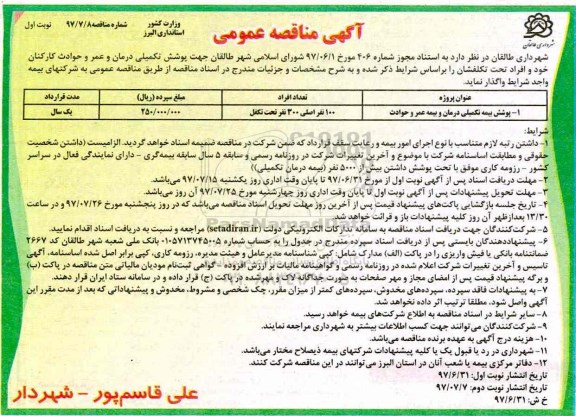 وزارت کشور
استانداری البرز
آگهی مناقصه عمومی
شماره مناقصه ۹۷/۷/۸
نوبت اول
شهرداری طالقان
شهرداری طالقان در نظر دارد به استناد مجوز شماره ۴۰۶ مورخ ۹۷/۰۶/۱ شورای اسلامی شهر طالقان جهت پوشش تکمیلی درمان و عمر و حوادث کارکنان
خود و افراد تحت تکلفشان را براساس شرایط ذکر شده و به شرح مشخصات و جزئیات مندرج در اسناد مناقصه از طریق مناقصه عمومی به شرکتهای بیمه
واجد شرایط واگذار نماید.
عنوان پروژه تعداد افراد مبلغ سپرده (ریال) مدت قرارداد
۱- پوشش بیمه تکمیلی درمان و بیمه عمر و حوادث ۱۰۰ نفر اصلی ۳۰۰ نفر تحت تکفل ۲۵۰/۰۰۰/۰۰۰ یک سال
شرایط:
۱- داشتن رتبه لازم متناسب با نوع اجرای امور بیمه و رعایت سقف قرارداد که ضمن شرکت در مناقصه ضمیمه اسناد خواهد گردید. الزامیست (داشتن شخصیت
حقوقی و مطابقت اساسنامه شرکت با موضوع و آخرین تغییرات شرکت در روزنامه رسمی و سابقه ۵ سال سابقه بیمه‌گری - دارای نمایندگی فعال در سراسر
کشور - رزومه کاری موفق با تحت پوشش داشتن بیش از ۵۰۰۰ نفر (بیمه درمان تکمیلی))
۲- مهلت دریافت اسناد پس از آگهی نوبت اول از مورخ ۹۷/۰۶/۳۱ تا پایان وقت اداری روز یکشنبه ۹۷/۰۷/۱۵ می‌باشد.
۳- مهلت تحویل پیشنهادات پس از آگهی نوبت اول تا پایان وقت اداری روز چهارشنبه مورخ ۹۷/۰۷/۲۵ آن روز می‌باشد.
۴- تاریخ جلسه بازگشایی پاکت‌های پیشنهاد قیمت پس از آخرین روز مهلت تحویل اسناد مناقصه می‌باشد که در روز پنجشنبه مورخ ۹۷/۰۷/۲۶ و در ساعت
۱۳/۳۰ بعدازظهر آن روز کلیه پیشنهادات باز و قرائت خواهد شد.
۵- شرکت‌کنندگان جهت دریافت اسناد مناقصه به سامانه تدارکات الکترونیکی دولت (setadiran.ir) مراجعه و نسبت به دریافت اسناد اقدام نمایند.
۶- پیشنهاددهندگان بایستی پس از دریافت اسناد سپرده مندرج در جدول را به حساب شماره ۰۱۰۵۷۱۳۷۴۵۰۰۵ بانک ملی شعبه شهر طالقان کد ۲۶۶۷
ضمانتنامه بانکی یا فیش واریزی را در پاکت (الف) مدارک شامل: کپی شناسنامه مدیرعامل و هیئت مدیره، رزومه کاری، کپی برابر اصل شده اساسنامه، آگهی
تاسیس و آخرین تغییرات شرکت اعلام شده در روزنامه رسمی و گواهینامه مالیات بر ارزش افزوده - گواهی ثبت‌نام مودیان مالیاتی متن مناقصه در پاکت (ب)
و برگه پیشنهاد قیمت پس از امضای مجاز و مهر صفحات به صورت جداگانه لاک و مهرشده در پاکت (ج) قرار داده و در سامانه ستاد ایران قرار دهند.
۷- به پیشنهادات فاقد سپرده، سپرده‌های مخدوش، سپرده‌های کمتر از میزان مقرر، چک شخصی و مشروط، مخدوش و پیشنهاداتی که بعد از مدت مقرر این
آگهی واصل شود. مطلقا ترتیب اثر داده نخواهد شد.
۸- سایر شرایط در اسناد مناقصه به اطلاع شرکت‌های بیمه خواهد رسید.
۹- شرکت‌کنندگان می‌توانند جهت کسب اطلاعات بیشتر به شهرداری مراجعه نمایند.
۱۰- هزینه درج آگهی به عهده برنده مناقصه می‌باشد.
۱۱- شهرداری در رد یا قبول یک یا کلیه پیشنهادات شرکتهای بیمه ذیصلاح مختار می‌باشد.
۱۲- دفاتر مرکزی بیمه یا شعب آنان در استان البرز می‌توانند در این مناقصه شرکت کنند.
تاریخ انتشار نوبت اول: ۹۷/۶/۳۱
تاریخ انتشار نوبت دوم: ۹۷/۰۷/۷
خ ش: ۹۷/۶/۳۱
علی قاسم‌پور - شهردار